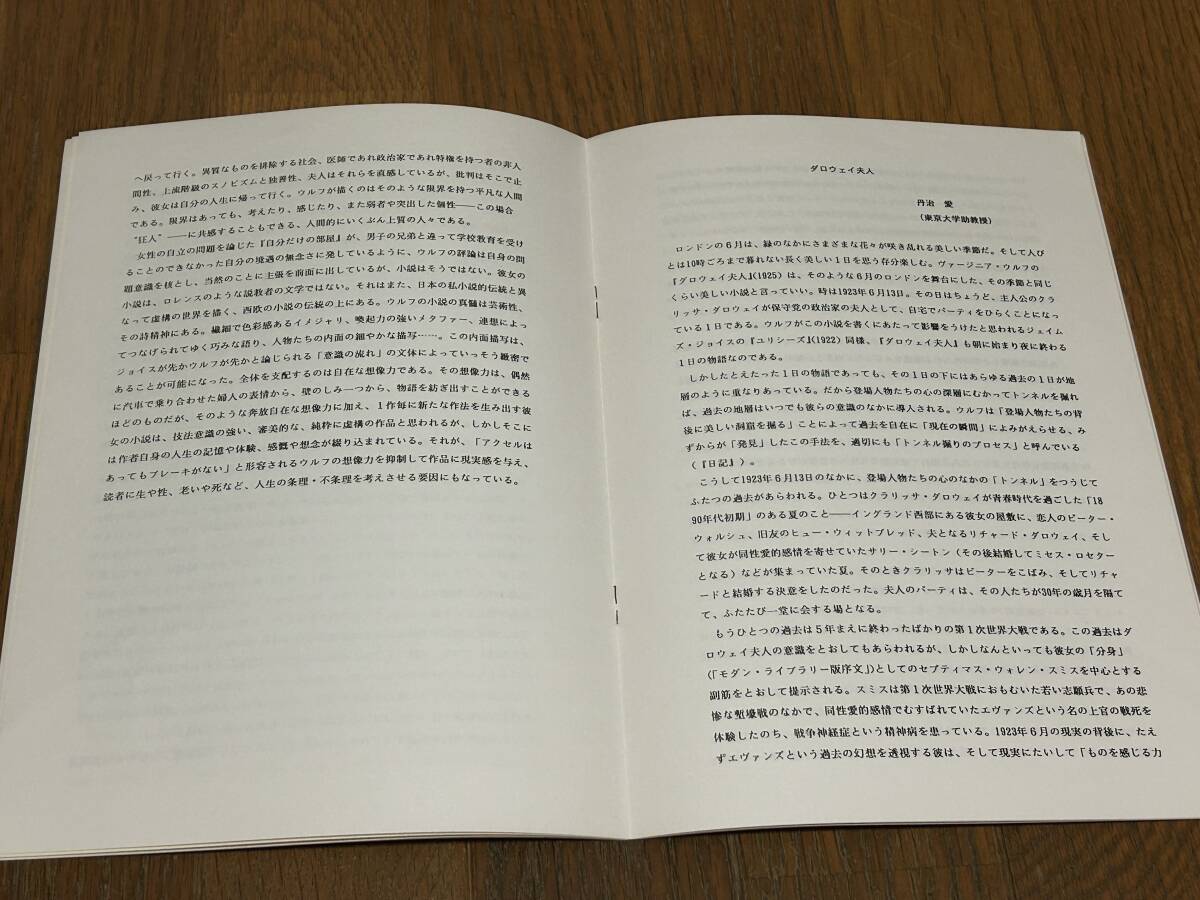 へ戻って行く。異質なものを排除する社会、医師であれ政治家であれ特権を持つ者の非人
間性、上流階級のスノビズムと独善性、夫人はそれらを直感しているが、批判はそこで止
み、彼女は自分の人生に帰って行く。ウルフが描くのはそのような限界を持つ平凡な人間
である。限界はあっても、考えたり、感じたり、また弱者や突出した個性――この場合
“狂人”――に共感することもできる、人間的にいくぶん上質の人々である。
女性の自立の問題を論じた『自分だけの部屋』が、男子の兄弟と違って学校教育を受け
ることのできなかった自分の境遇の無念さに発しているように、ウルフの評論は自身の問
題意識を核とし、当然のことに主張を前面に出しているが、小説はそうではない。彼女の
小説は、ロレンスのような説教者の文学ではない。それはまた、日本の私小説的伝統と異
なって虚構の世界を描く、西欧の小説の伝統の上にある。ウルフの小説の真髄は芸術性、
その詩精神にある。繊細で色彩感あるイメジャリ、喚起力の強いメタファー、連想によっ
てつなげられてゆく巧みな語り、人物たちの内面の細やかな描写……。この内面描写は、
ジョイスが先かウルフが先かと論じられる「意識の流れ」の文体によっていっそう緻密で
あることが可能になった。全体を支配するのは自在な想像力である。その想像力は、偶然
に汽車で乗り合わせた婦人の表情から、壁のしみ一つから、物語を紡ぎ出すことができる
ほどのものだが、そのような奔放自在な想像力に加え、1作毎に新たな作法を生み出す彼
女の小説は、技法意識の強い、審美的な、純粋に虚構の作品と思われるが、しかしそこに
は作者自身の人生の記憶や体験、感慨や想念が綴り込まれている。それが、「アクセルは
あってもブレーキがない」と形容されるウルフの想像力を抑制して作品に現実感を与え、
読者に生や性、老いや死など、人生の条理・不条理を考えさせる要因にもなっている。
ダロウェイ夫人
丹治 愛
(東京大学助教授)
ロンドンの6月は、緑のなかにさまざまな花々が咲き乱れる美しい季節だ。そして人び
とは10時ごろまで暮れない長く美しい1日を思う存分楽しむ。ヴァージニア・ウルフの
『ダロウェイ夫人』(1925)は、そのような6月のロンドンを舞台にした、その季節と同じ
くらい美しい小説と言っていい。時は1923年6月13日。その日はちょうど、主人公のクラ
リッサ・ダロウェイが保守党の政治家の夫人として、自宅でパーティをひらくことになっ
ている1日である。ウルフがこの小説を書くにあたって影響をうけたと思われるジェイム
ズ・ジョイスの『ユリシーズ』(1922)同様、『ダロウェイ夫人』も朝に始まり夜に終わる
1日の物語なのである。
しかしたとえたった1日の物語であっても、その1日の下にはあらゆる過去の1日が地
層のように重なりあっている。だから登場人物たちの心の深層にむかってトンネルを掘れ
ば、過去の地層はいつでも彼らの意識のなかに導入される。ウルフは「登場人物たちの背
後に美しい洞窟を掘る」ことによって過去を自在に「現在の瞬間」によみがえらせる、み
ずからが「発見」したこの手法を、適切にも「トンネル掘りのプロセス」と呼んでいる
(『日記』)。
こうして1923年6月13日のなかに、登場人物たちの心のなかの「トンネル」をつうじて
ふたつの過去があらわれる。ひとつはクラリッサ・ダロウェイが青春時代を過ごした「18
90年代初期」のある夏のこと――イングランド西部にある彼女の屋敷に、恋人のピーター・
ウォルシュ、旧友のヒュー・ウィットブレッド、夫となるリチャード・ダロウェイ、そし
て彼女が同性愛的感情を寄せていたサリー・シートン(その後結婚してミセス・ロセター
となる)などが集まっていた夏。そのときクラリッサはピーターをこばみ、そしてリチャ
ードと結婚する決意をしたのだった。夫人のパーティは、その人たちが30年の歳月を隔て
て、ふたたび一堂に会する場となる。
もうひとつの過去は5年まえに終わったばかりの第1次世界大戦である。この過去はダ
ロウェイ夫人の意識をとおしてもあらわれるが、しかしなんといっても彼女の「分身」
(「モダン・ライブラリー版序文」)としてのセプティマス・ウォレン・スミスを中心とする
副筋をとおして提示される。スミスは第1次世界大戦におもむいた若い志願兵で、あの悲
惨な塹壕戦のなかで、同性愛的感情でむすばれていたエヴァンズという名の上官の戦死を
体験したのち、戦争神経症という精神病を患っている。1923年6月の現実の背後に、たえ
ずエヴァンズという過去の幻想を透視する彼は、そして現実にたいして「ものを感じる力